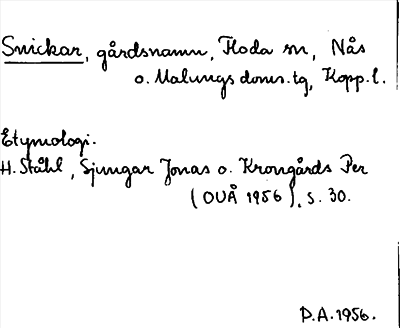 Snickar, gårdsnamn, Floda sn, Nås
o. Malungs doms.tg, Kopp.l.
Etymologi.
H. Ståhl, Sjungar Jonas o. Krongårds Per
(OUÅ 1956), s. 30.
D.A. 1956.